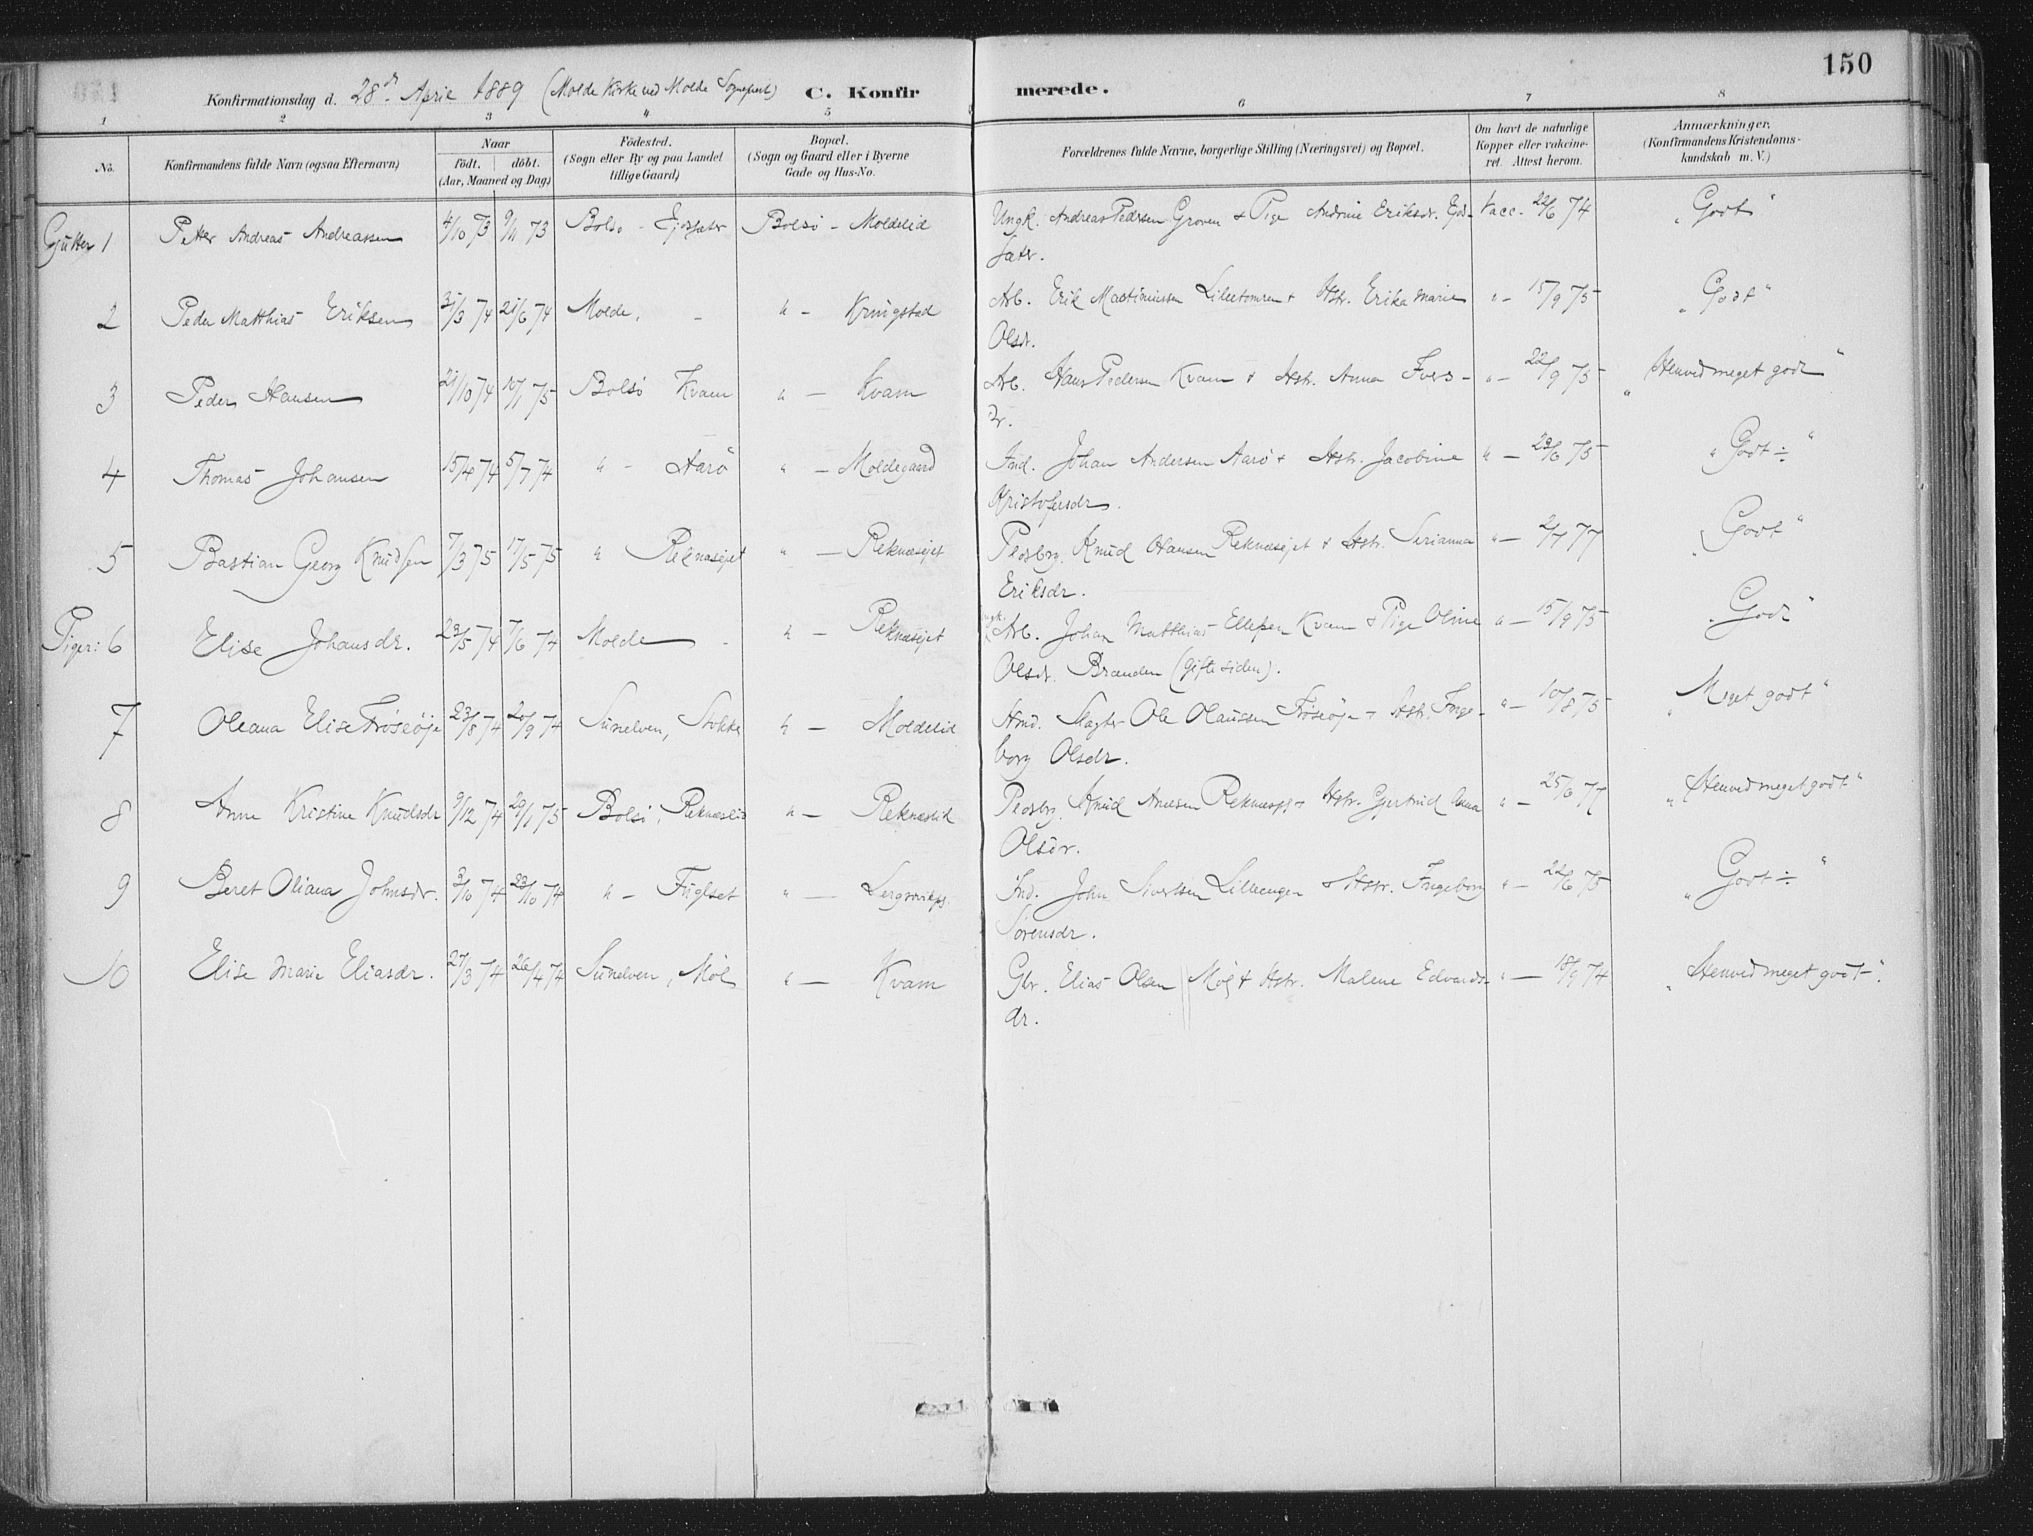 150
Konfirmationsdag d. 28de April 1889 (Molde Kirke ved Molde Sognepræst) C. Konfirmerede.
1 2 3 4 5 6 7 8
No.
Konfirmandens fulde Navn (ogsaa Efternavn)
Naar
födt. döbt.
(Aar, Maaned og Dag)
Födested.
(Sogn eller By og paa Landet
tillige Gaard)
Bopæl.
(Sogn og Gaard eller i Byerne
Gade og Hus-No.
Forældrenes fulde Navne, borgerlige Stilling (Næringsvei) og Bopæl.
Om havt de naturlige
Kopper eller vakcine-
ret. Attest herom.
Anmærkninger.
(Konfirmandens Kristendoms-
kundskab m. V.)
Gutter 1 Petter Andreas Andreassen 4/10 73 9/11 73 Bolsø - Bolsø - Moldelid Ungk. Andreas Pedersen Groven & Pige Andrine Eriksdr. Vacc. 22/6 74 "Godt"
sæter.
2 Peder Matthias Eriksen 31/3 74 21/6 74 Molde, - " - Kringstad Arb. Erik Martiniussen & Hstr. Erika Marie " - 15/9 75 "Godt"
Olsdr.
3 Peder Hansen 21/10 74 10/1 75 Bolsø Kvam " - Kvam Arb. Hans Pedersen Kvam & Hstr. Anna Ivers- " - 22/9 75 "Henved meget godt"
dr.
4 Thomas Johansen 15/4 74 5/7 74 " - Aarö " - Moldegaard Ind. Johan Andersen Aarö & Hstr. Jacobine " - 23/6 75 "Godt ÷"
Kristofersdr.
5 Bastian Georg Knudsen 7/3 75 17/5 75 " Reknæsöjet " - Reknæsöjet Pladsbrg. Knud Hansen Reknæsöjet & Hstr. Serianna " - 2/7 77 "Godt"
Eriksdr.
Piger: 6 Elise Johansdr. 29/5 74 7/6 74 Molde - " - Reknæsöjet Ungk. Arb. Johan Matthias Ellefsen Kvam & Pige Oline " - 15/9 75 "Godt"
Olsdr. Branden (gifte siden).
7 Oleana Elise Fröseöje 23/8 74 20/9 74 Sunelven, Stokke " - Moldelid Hmd. Slagter Ole Olaussen Fröseöje & Hstr. Inge- " - 10/8 75 "Meget godt"
borg Olsdr.
8 Anne Kristine Knudsdr 9/12 74 29/1 75 Bolsö, Reknæslid " - Reknæslid Pladsbrg. Knud Reknæspl. & Hstr. Gjertrud Anna " - 25/6 77 "Henved meget godt"
Olsdr.
9 Beret Oliana Johnsdr. 3/10 74 23/10 74 " - Fuglset " - Lergrovikpl. Ind. John Sivertsen Lilleengen & Hstr. Ingeborg " - 22/6 75 "Godt ÷"
Sörensdr.
10 Elise Marie Eliasdr. 27/3 74 26/4 74 Sunelven, Möl " - Kvam Gbr. Elias Olsen Möl & Hstr. Malene Edvards- " - 18/9 74 "Henved meget godt".
dr.